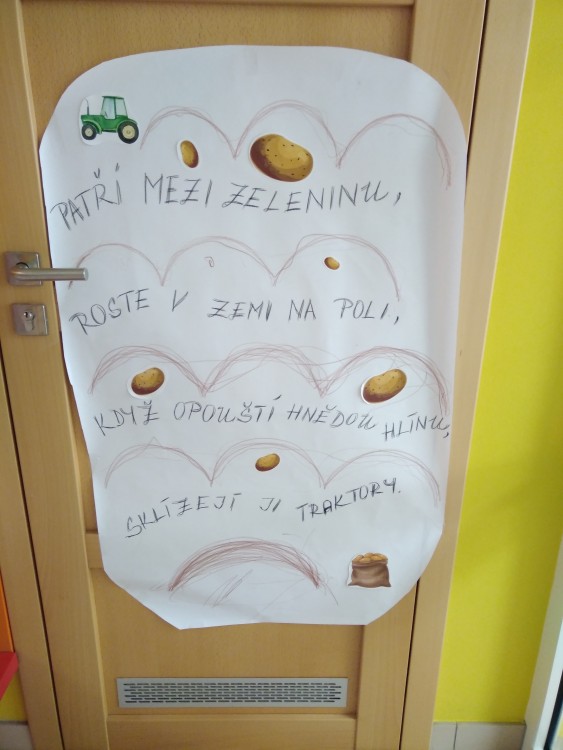 PATŘÍ MEZI ZELENINU,
ROSTE V ZEMI NA POLI,
KDYŽ OPOUŠTÍ HNĚDOU HLÍNU,
SKLÍZEJÍ JI TRAKTORY.